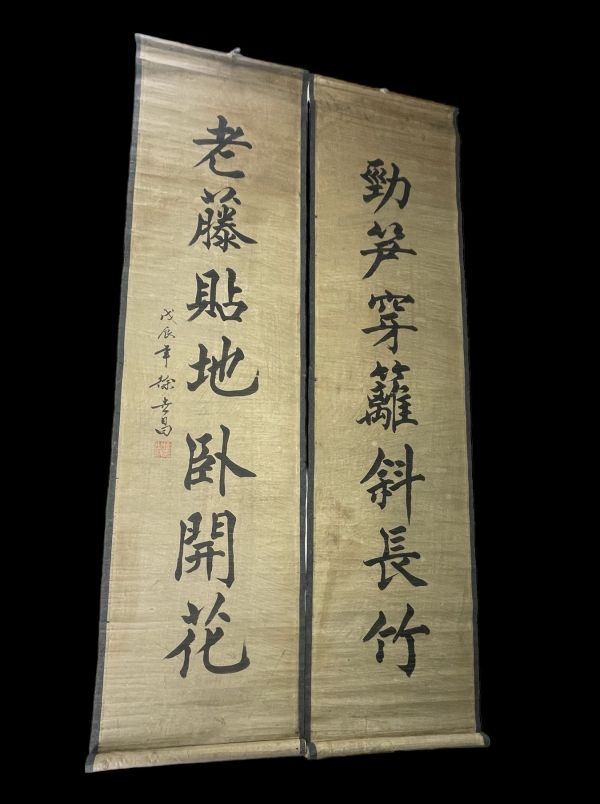 勁笋穿籬斜長竹
老藤貼地卧開花
戊辰年徐世昌